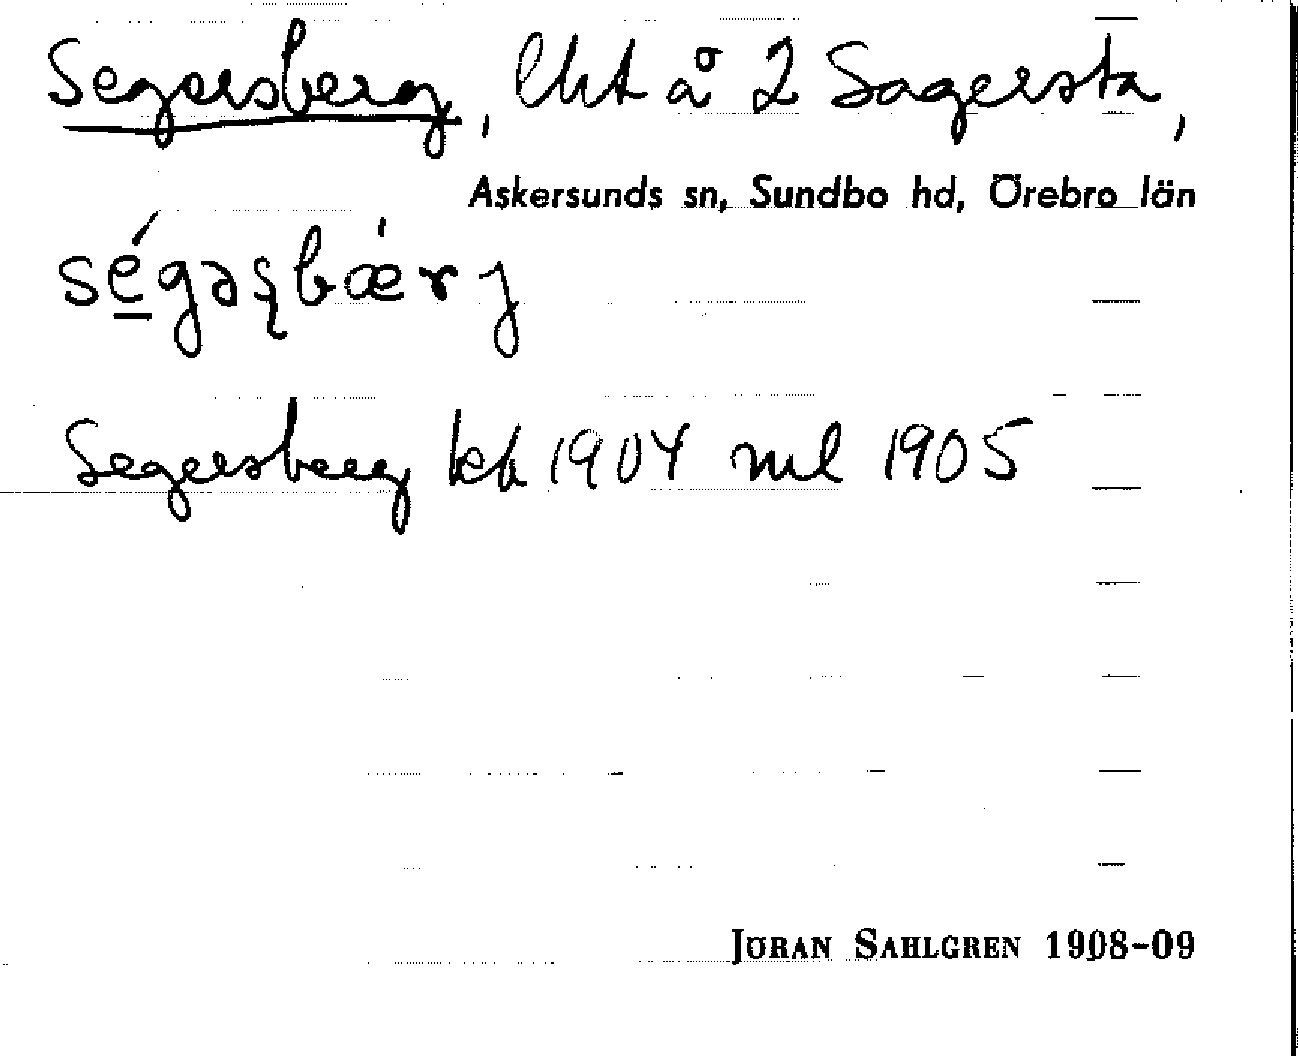 Segersberg, lht å 2 Sagersta,
Askersunds sn, Sundbo hd, Örebro län
ségəʂbǽrj
Segersberg kb 1904 ml 1905
JÖRAN SAHLGREN 1908-09